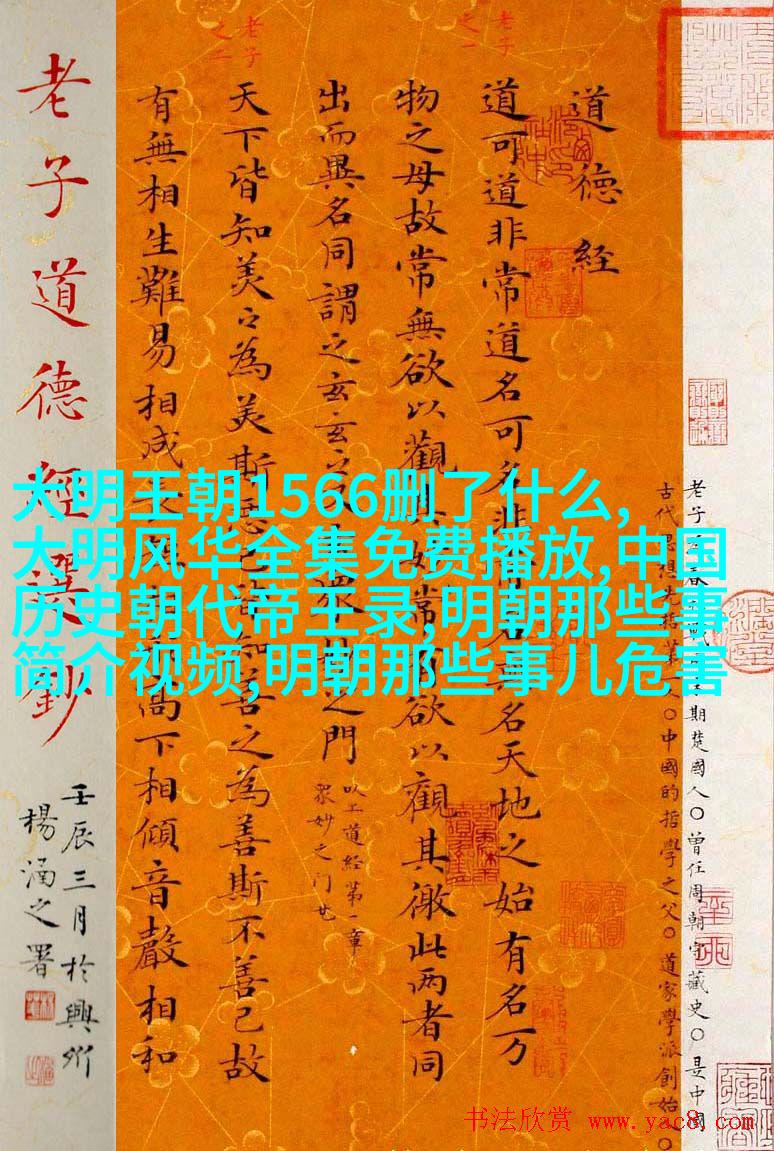 大明王朝1566删了什么,
大明风华全集免费播放,中国
历史朝代帝王录,明朝那些事
简介视频,明朝那些事儿危害
老子
之一
老子
之二
道德經
道可道非常道名可名非常名無名天地之始有名万
物之母故常無欲以觀其妙常有欲以觀其徼此两者同
出而異名同謂之玄玄之門
以上道經第一章
天下皆知美之為美斯惡已皆知善之為善斯不善已故
有無相生難易相成相高下相傾音聲相和
老子春期楚國人○曾任周朝守藏史○是中國
古代思想○中國的哲學之父○道家學派創始○
老子道德經選鈔
壬辰三月於興
楊涵之署
书法欣赏 www.yac8.com